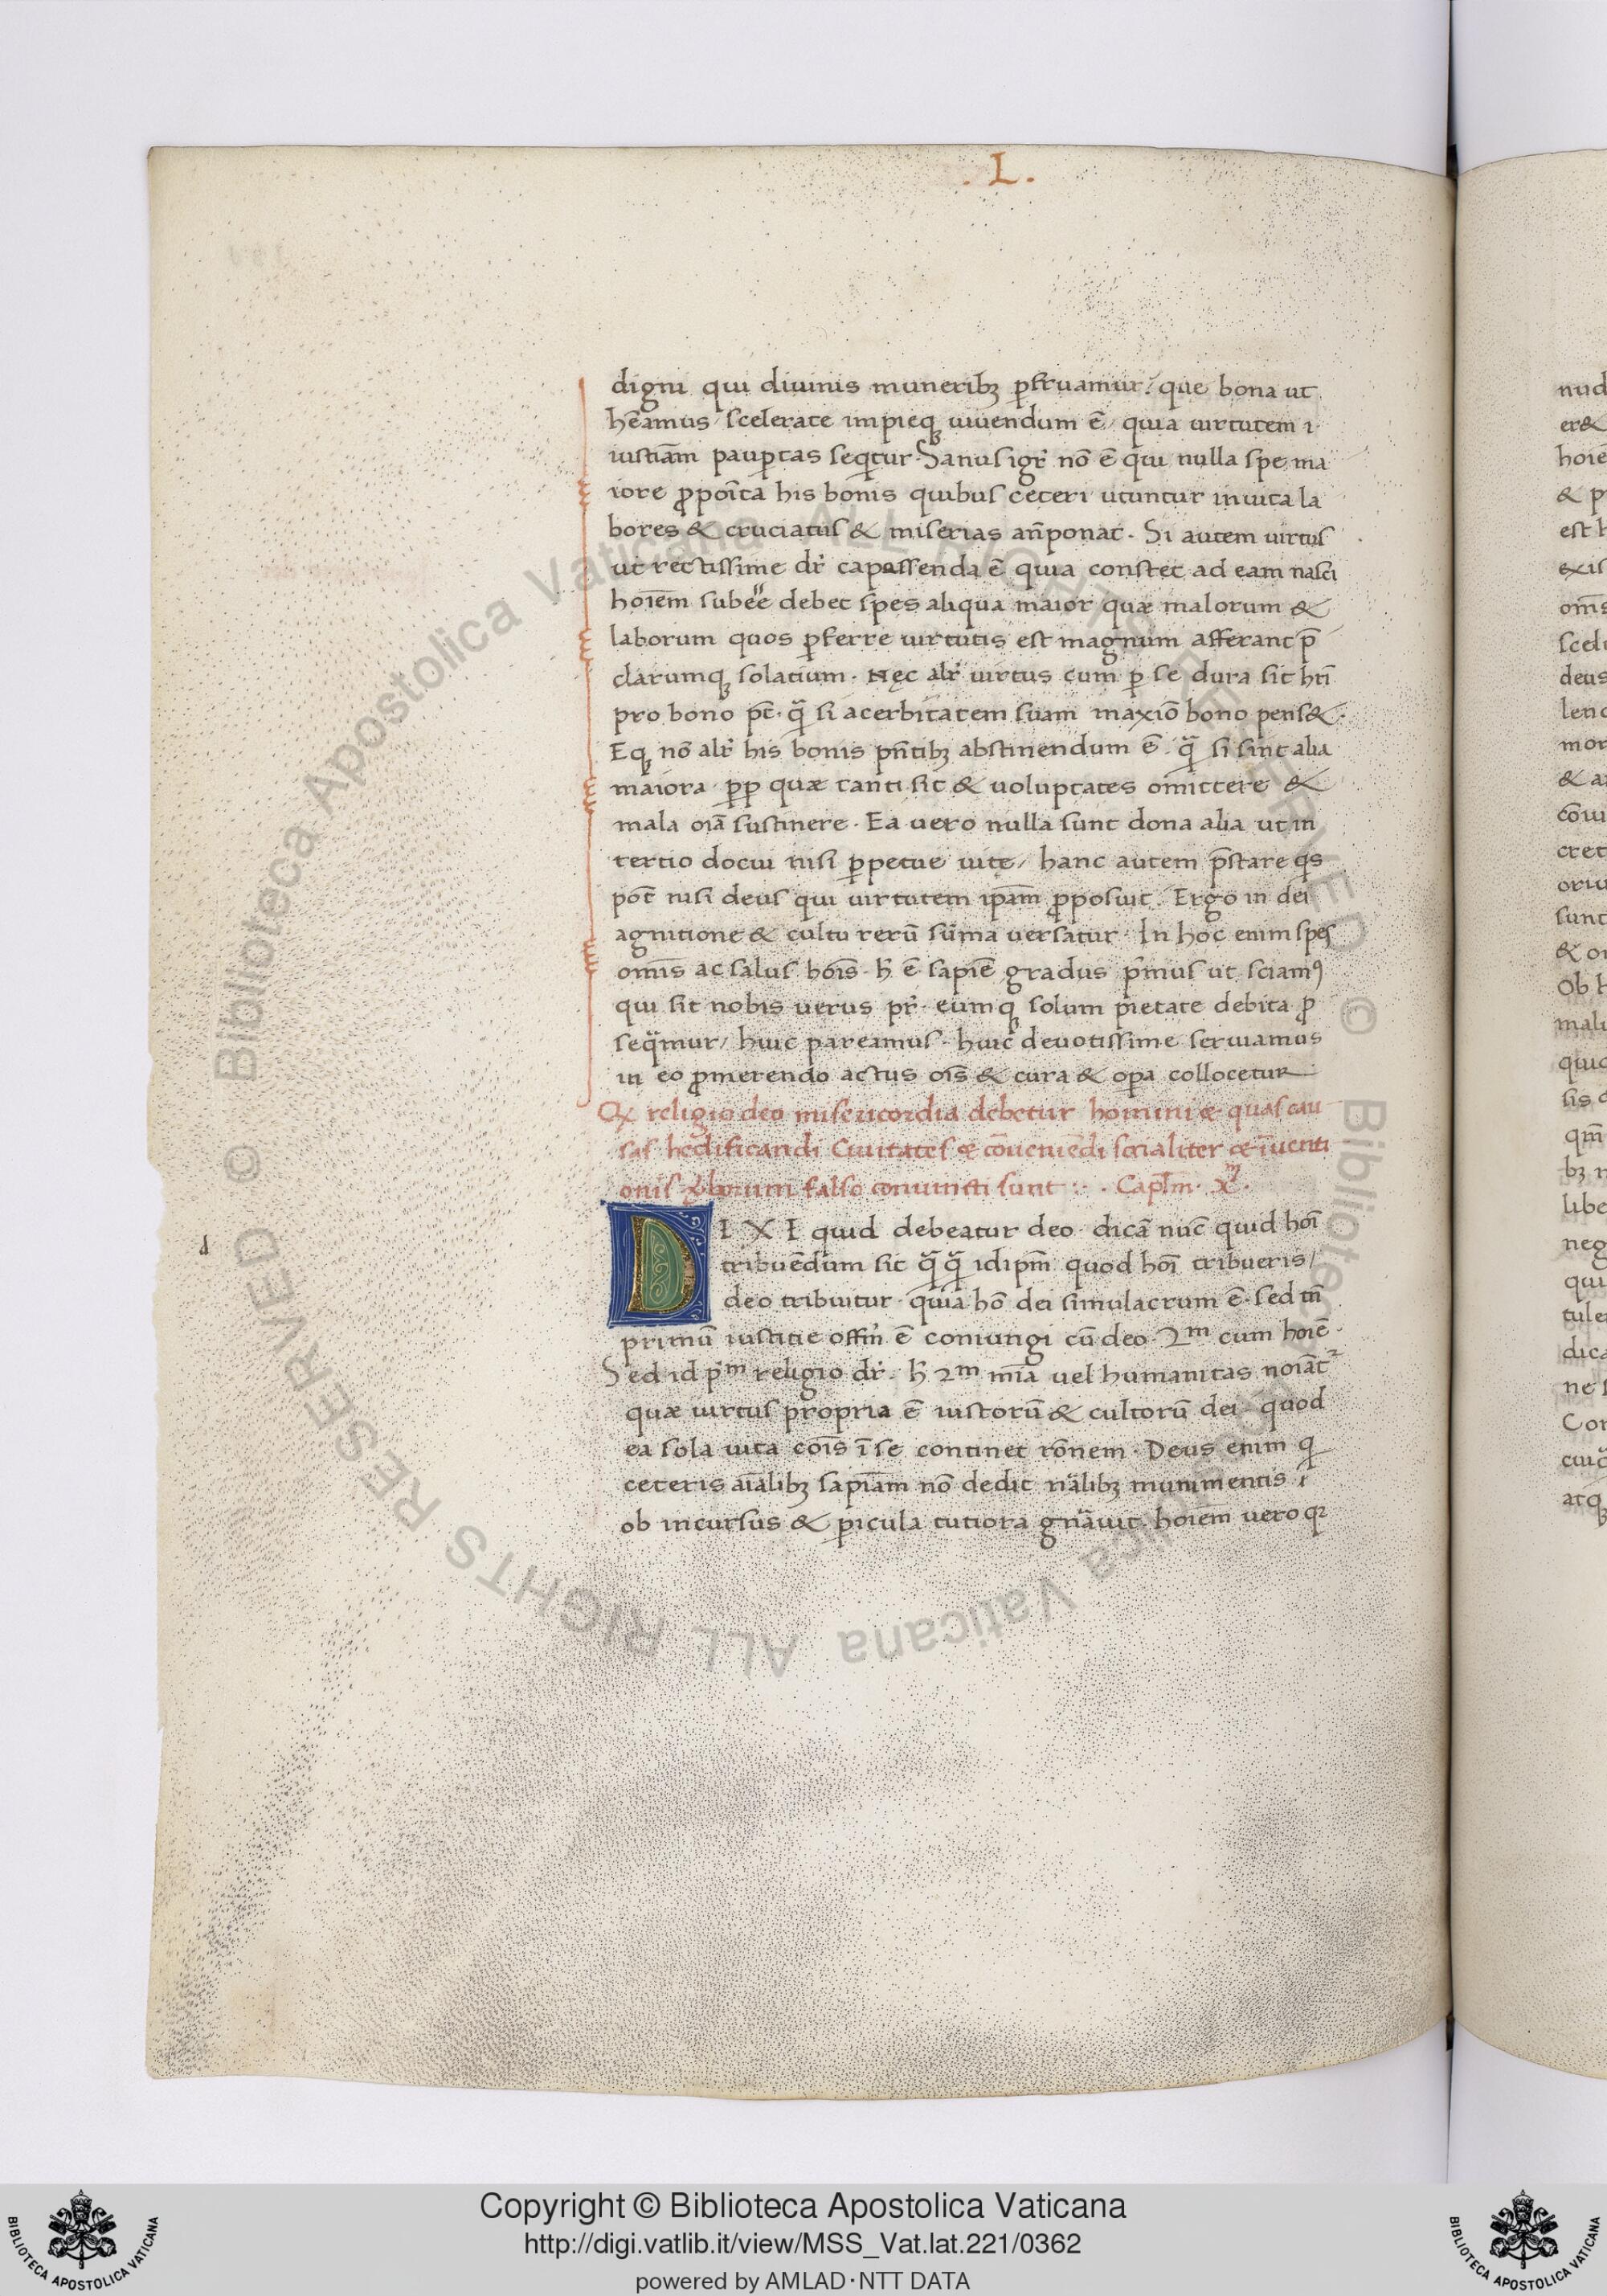 . L .
digni qui diuinis muneribꝫ ꝑfruamur? que bona ut
hēamus / scelerate impieqꝫ uiuendum ē / quia uirtutem ⁊
iustiām pauꝑtas seqͥtur. Sanus igr̄ nō ē qui nulla spe ma
iore ꝓpoīta his bonis quibus ceteri utuntur in uita la
bores & cruciatus & miserias an̄ponat. Si autem uirtus
ut rectissime dr̄ capassenda ē quia constet ad eam nasci
hoīem subeē debet spes aliqua maior quæ malorum &
laborum quos ꝑferre uirtutis est magnum afferant p̄
clarumqꝫ solatium. Nęc alr̄ uirtus cum ꝑ se dura sit hr̄i
pro bono pt̄. qͣ si acerbitatem suam maxīo bono penset.
Eqꝫ nō alr̄ his bonis pn̄tibꝫ abstinendum ē. qͣ si sint alia
maiora. ꝑp quæ tanti sit & uoluptates omittere &
mala oīa sustinere. Ea uero nulla sunt dona alia ut in
tertio docui nisi ꝑpetue uitę / hanc autem p̄stare qͥs
pōt nisi deus qui uirtutem ip̄am ꝓposuit. Ergo in dei
agnitione & cultu rerū sūma uersatur. In hoc enim spes
omīs ac salus hōis. h̄ ē sapiē gradus pͥmus ut sciamꝰ
qui sit nobis uerus pr̄. eumqꝫ solum pietate debita ꝓ
seqͣmur / huic pareamus. huic deuotissime seruiamus
in eo ꝓmerendo actus oīs & cura & oꝑa collocetur
Qx religio deo misericordia debetur homini & quas cau
sas hedificandi Ciuitates & cōueniēdi socialiter & īuenti
onis ꝟborum falso coniuncti sunt :. Capl̄m. Xᵐ.
DIXI quid debeatur deo. dicā nūc quid hoī
tribuēdum sit qͣqͣ id ip̄m quod hoī tribueris /
deo tribuitur. quia hō dei simulacrum ē. sed tn̄
primū iustitie offm̄ ē coniungi cū deo. 2ᵐ cum hoīe.
Sed id pͥᵐ religio dr̄. h̄ 2ᵐ mīa uel humanitas noīat᷑
quæ uirtus propria ē iustorū & cultorū dei. quod
ea sola uita cōis ī se continet rōnem. Deus enim qͥ
ceteris aīalibꝫ sapīam nō dedit nālibꝫ munimentis ⁊
ob incursus & ꝑicula tutiora gn̄auit. hoīem uero qꝛ
d
Copyright © Biblioteca Apostolica Vaticana
http://digi.vatlib.it/view/MSS_Vat.lat.221/0362
powered by AMLAD·NTT DATA
BIBLIOTECA APOSTOLICA VATICANA
BIBLIOTECA APOSTOLICA VATICANA
© Biblioteca Apostolica Vaticana ALL RIGHTS RESERVED © Biblioteca Apostolica Vaticana ALL RIGHTS RESERVED